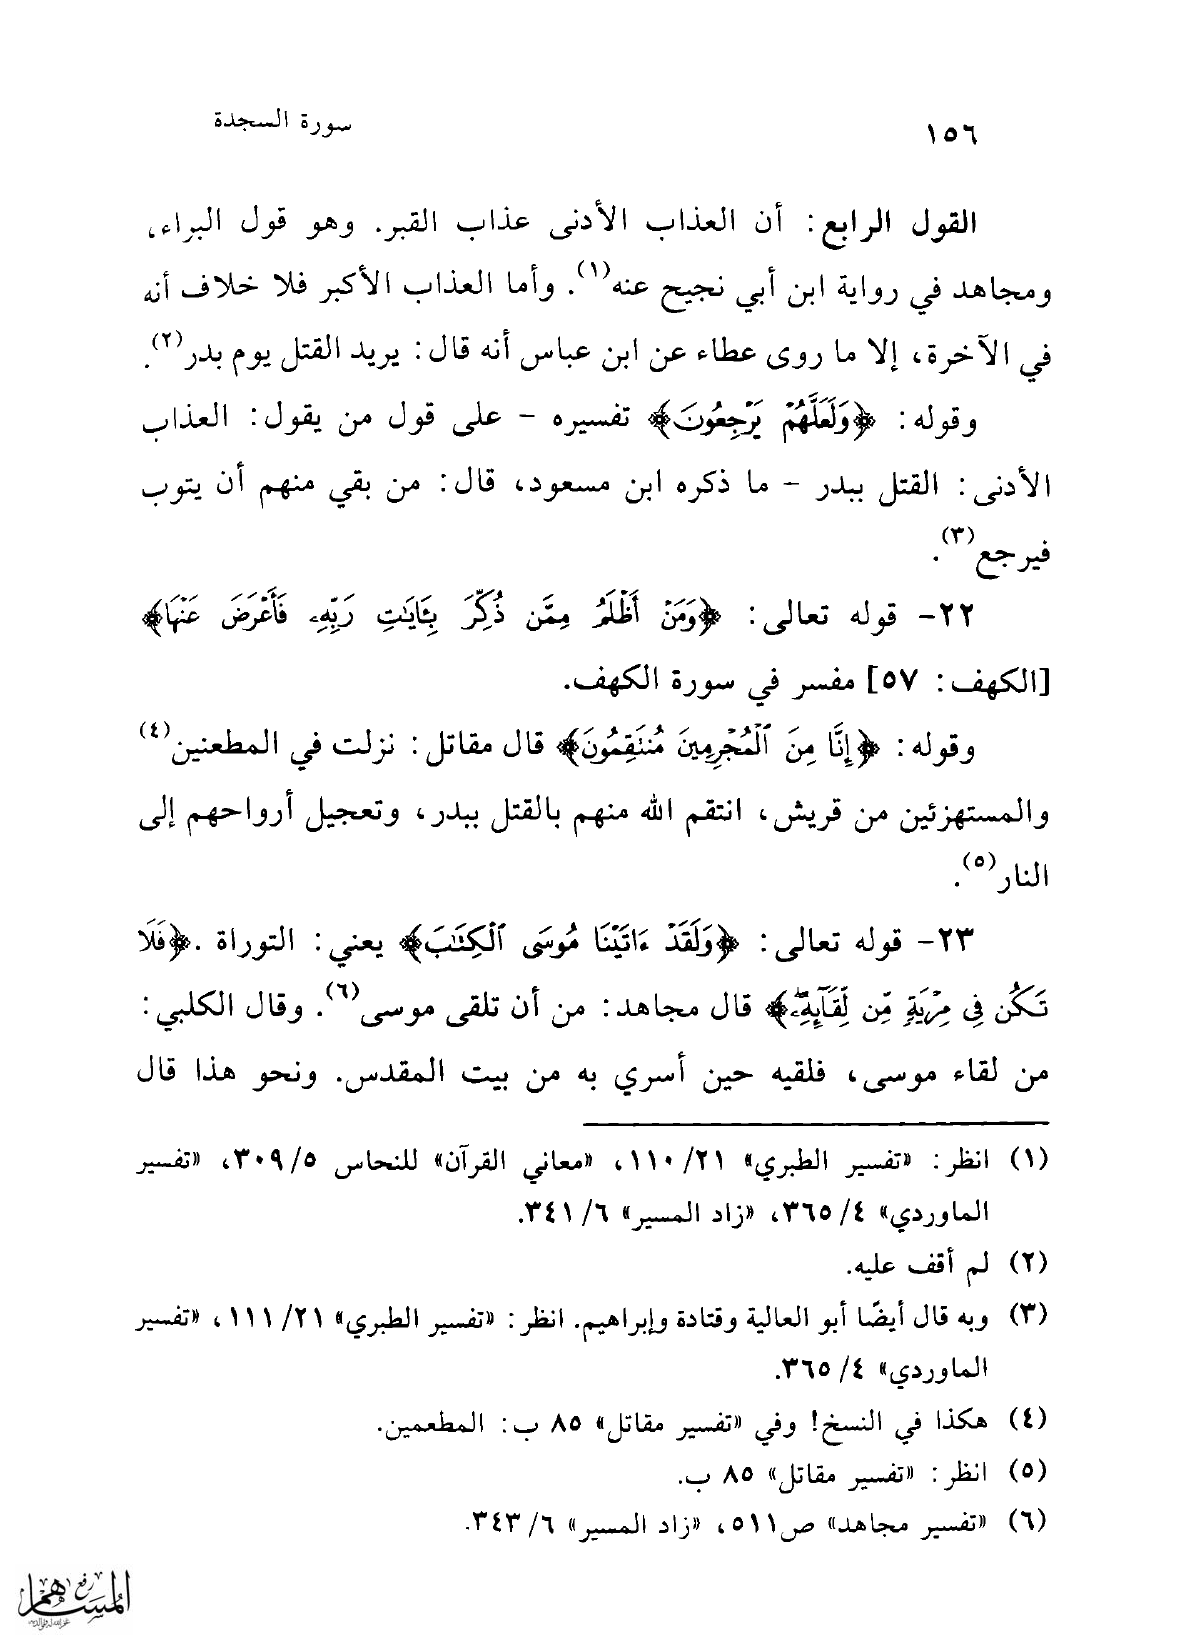 ١٥٦
سورة السجدة
القول الرابع: أن العذاب الأدنى عذاب القبر. وهو قول البراء،
ومجاهد في رواية ابن أبي نجيح عنه(١). وأما العذاب الأكبر فلا خلاف أنه
في الآخرة، إلا ما روى عطاء عن ابن عباس أنه قال: يريد القتل يوم بدر(٢).
وقوله: ﴿وَلَعَلَّهُمْ يَرْجِعُونَ﴾ تفسيره - على قول من يقول: العذاب
الأدنى: القتل ببدر - ما ذكره ابن مسعود، قال: من بقي منهم أن يتوب
فيرجع(٣).
٢٢- قوله تعالى: ﴿وَمَنْ أَظْلَمُ مِمَّن ذُكِّرَ بِـَٔايَـٰتِ رَبِّهِۦ فَأَعْرَضَ عَنْهَا﴾
[الكهف: ٥٧] مفسر في سورة الكهف.
وقوله: ﴿إِنَّا مِنَ ٱلْمُجْرِمِينَ مُنتَقِمُونَ﴾ قال مقاتل: نزلت في المطعنين(٤)
والمستهزئين من قريش، انتقم الله منهم بالقتل ببدر، وتعجيل أرواحهم إلى
النار(٥).
٢٣- قوله تعالى: ﴿وَلَقَدْ ءَاتَيْنَا مُوسَى ٱلْكِتَـٰبَ﴾ يعني: التوراة .﴿فَلَا
تَكُن فِى مِرْيَةٍ مِّن لِّقَآئِهِۦ﴾ قال مجاهد: من أن تلقى موسى(٦). وقال الكلبي:
من لقاء موسى، فلقيه حين أسري به من بيت المقدس. ونحو هذا قال
(١) انظر: «تفسير الطبري» ٢١/ ١١٠، «معاني القرآن» للنحاس ٥/ ٣٠٩، «تفسير
الماوردي» ٤/ ٣٦٥، «زاد المسير» ٦/ ٣٤١.
(٢) لم أقف عليه.
(٣) وبه قال أيضًا أبو العالية وقتادة وإبراهيم. انظر: «تفسير الطبري» ٢١/ ١١١، «تفسير
الماوردي» ٤/ ٣٦٥.
(٤) هكذا في النسخ! وفي «تفسير مقاتل» ٨٥ ب: المطعمين.
(٥) انظر: «تفسير مقاتل» ٨٥ ب.
(٦) «تفسير مجاهد» ص٥١١، «زاد المسير» ٦/ ٣٤٣.